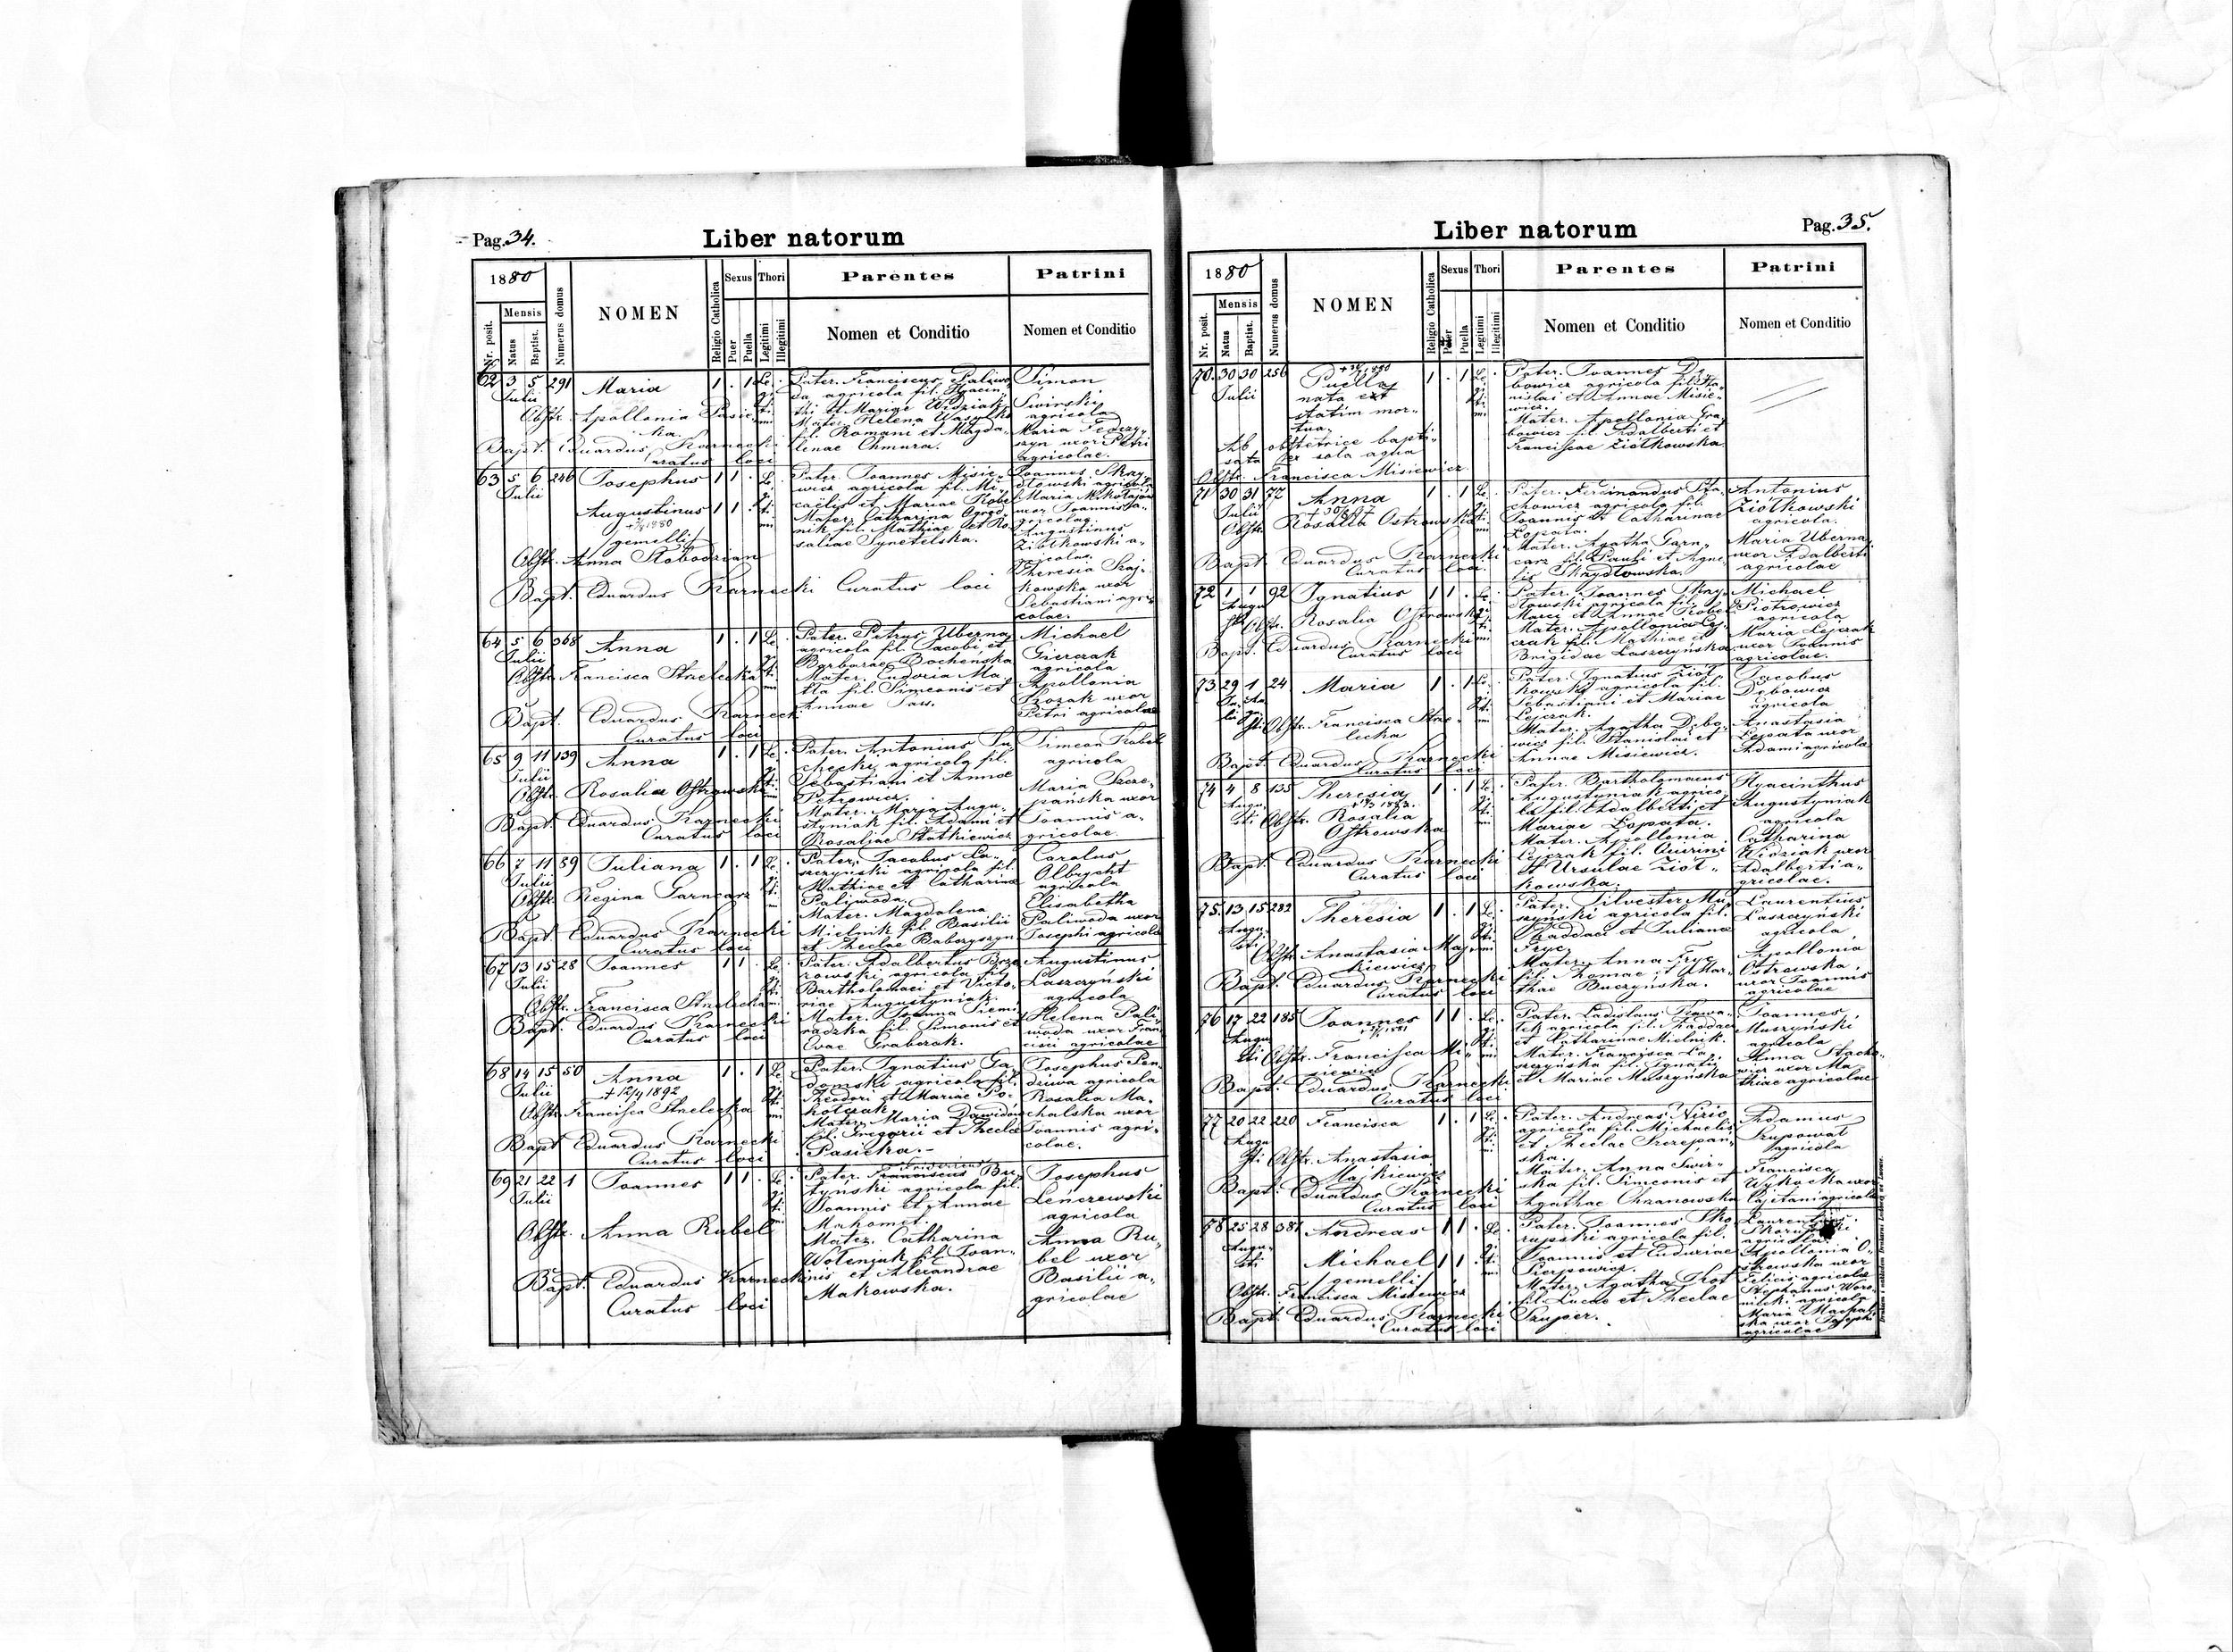 Pag. 34.
Liber natorum
1880
Nr. posit.
Mensis
Natus
Baptist.
Numerus domus
NOMEN
Religio Catholica
Sexus
Puer
Puella
Thori
Legitimi
Illegitimi
Parentes
Nomen et Conditio
Patrini
Nomen et Conditio
62 3 5 291 Maria 1 . 1
Julii
Obstr. Apollonia
Bapt. Eduardus Karnecki
Curatus loci
Pater. Franciscus
agricola fil.
Mater. Helena
fil. Romani et Magda-
lenae Chmura.
Simon
Swirski
agricola
Maria
uxor Petri
agricolae.
63 5 6 246 Josephus 1 1 .
Julii
Augustinus 1 1 .
gemelli
Obstr. Anna
Bapt. Eduardus Karnecki Curatus loci
Pater. Joannes Misie-
wicz agricola fil. Mi-
caëlis et Mariae
Mater. Catharina
nik fil. Mathiae et Ro-
saliae
Joannes
agricola
Maria
uxor Joannis a-
gricolae
Augustinus
Ziółkowski a-
gricola.
Theresia
kowska uxor
Sebastiani agri-
colae.
64 5 6 368 Anna 1 . 1
Julii
Obstr. Francisca Strzelecka
Bapt. Eduardus Karnecki
Curatus loci
Pater. Petrus Uberna
agricola fil. Jacobi et
Barbarae Bochenska
Mater. Eudoxia Ma-
fil. Simeonis et
Annae
Michael
agricola
Apollonia
uxor
Petri agricolae
65 9 11 139 Anna 1 . 1
Julii
Obstr. Rosalia Ostrowska
Bapt. Eduardus Karnecki
Curatus loci
Pater. Antonius Su-
checki agricola fil.
Sebastiani et Annae
Petrowicz.
Mater. Maria Augu-
styniak fil. Adami et
Rosaliae Statkiewicz
Simeon
agricola
Maria Szcze-
pańska uxor
Joannis a-
gricolae.
66 7 11 89 Juliana 1 . 1
Julii
Obstr. Regina Garncarz
Bapt. Eduardus Karnecki
Curatus loci
Pater. Jacobus La-
szczyński agricola fil.
Mathiae et Catharinae
Paliwoda.
Mater. Magdalena
Mielnik fil. Basilii
et Theclae
Carolus
Olbrycht
agricola
Elisabetha
Paliwoda uxor
Josephi agricolae
67 13 15 28 Joannes 1 1 .
Julii
Obstr. Francisca Strzelecka
Bapt. Eduardus Karnecki
Curatus loci
Pater. Adalbertus Brze-
zowski agricola fil.
Bartholomaei et Victo-
riae Augustyniak.
Mater. Joanna Siemi-
radzka fil. Simonis et
Evae Grabczak.
Augustinus
Laszczyński
agricola
Helena Pali-
woda uxor Fran-
cisci agricolae
68 14 15 50 Anna 1 . 1
Julii
+ 12/9 1892
Obstr. Francisca Strzelecka
Bapt Eduardus Karnecki
Curatus loci
Pater. Ignatius Ga-
domski agricola fil.
Theodori et Mariae
Mater. Maria
fil. Gregorii et Theclae
Pasieka.-
Josephus
agricola
Rosalia Ma-
chalska uxor
Joannis agri-
colae.
69 21 22 1 Joannes 1 1 .
Julii
Obstr. Anna Rubel
Bapt. Eduardus Karnecki
Curatus loci
Pater. Franciscus Bu-
tyński agricola fil.
Joannis et Annae
Mahomet.
Mater. Catharina
Woleniuk fil. Joan-
nis et Alexandrae
Makowska.
Josephus
Lenczewski
agricola
Anna Ru-
bel uxor
Basilii a-
gricolae
Pag. 35.
Liber natorum
1880
Nr. posit.
Mensis
Natus
Baptist.
Numerus domus
NOMEN
Religio Catholica
Sexus
Puer
Puella
Thori
Legitimi
Illegitimi
Parentes
Nomen et Conditio
Patrini
Nomen et Conditio
70. 30 30 256 Puella 1 . 1
Julii
nata est
statim mor-
tua.
Ab obstetrice bapti-
sata ex sola aqua
Obstr. Francisca Misiewicz
Pater. Joannes Dę-
bowicz agricola fil. Sta-
nislai et Annae Misie-
wicz.
Mater. Apollonia Gra-
bowicz fil. Adalberti et
Franciscae Ziółkowska
71 30 31 77 Anna 1 . 1
Julii
Obstr. Rosalia Ostrowska
Bapt. Eduardus Karnecki
Curatus loci
Pater. Ferdinandus Sta-
chowicz agricola fil.
Joannis et Catharinae
Łopata.
Mater. Agatha Garn-
carz fil. Pauli et Agne-
tis
Antonius
Ziółkowski
agricola.
Maria Uberna
uxor Adalberti
agricolae
72 1 1 92 Ignatius 1 1 .
Augu-
sti
Obstr. Rosalia Ostrowska
Bapt. Eduardus Karnecki
Curatus loci
Pater. Joannes
agricola fil.
Marci et Annae
Mater. Apollonia Lej-
czak fil. Mathiae et
Brigidae Laszczyńska
Michael
Piotrowicz
agricola
Maria Lejczak
uxor Joannis
agricolae.
73. 29 1 24 Maria 1 . 1
Obstr. Francisca Strze-
lecka
Bapt. Eduardus Karnecki
Curatus loci
Pater. Ignatius Ziół-
kowski agricola fil.
Sebastiani et Mariae
Lejczak.
Mater. Agatha Dębo-
wicz fil. Stanislai et
Annae Misiewicz.
Jacobus
Dębowicz
agricola
Anastasia
Łopata uxor
Adami agricolae
74 4 8 135 Theresia 1 . 1
Augu-
sti
Obstr. Rosalia
Ostrowska
Bapt. Eduardus Karnecki
Curatus loci
Pater. Bartholomaeus
Augustyniak agrico-
la fil. Adalberti et
Mariae Łopata.
Mater. Apollonia
Lejczak fil. Quirini
et Ursulae Ziół-
kowska.
Hyacinthus
Augustyniak
agricola
Catharina
Widziak uxor
Adalberti a-
gricolae.
75. 13 15 282 Theresia 1 . 1
Augu-
sti
Obstr. Anastasia Maj-
kiewicz
Bapt. Eduardus Karnecki
Curatus loci
Pater. Silvester Mu-
szyński agricola fil.
Thaddaei et Juliana
Fryc.
Mater. Anna Fryc
fil. Thomae et Mar-
thae Buczyńska.
Laurentius
Laszczyński
agricola
Apollonia
Ostrowska
uxor Joannis
agricolae
76 17 22 185 Joannes 1 1 .
Augu-
sti
Obstr. Francisca Mi-
siewicz
Bapt. Eduardus Karnecki
Curatus loci
Pater. Ladislaus
agricola fil. Thaddaei
et Catharinae Mielnik.
Mater. Francisca La-
szczyńska fil. Ignatii
et Mariae Muszyńska
Joannes
Muszyński
agricola
Anna Stacho-
wicz uxor Ma-
thiae agricolae
77 20 22 220 Francisca 1 . 1
Augu-
sti
Obstr. Anastasia
Majkiewicz
Bapt. Eduardus Karnecki
Curatus loci
Pater. Andreas
agricola fil. Michaelis
et Theclae Szczepań-
ska.
Mater. Anna Swir-
ska fil. Simeonis et
Agathae Chzanowska
Adamus
Szupowal
agricola
Francisca
Wykacka uxor
Cajetani agricolae
78 25 28 381 Andreas 1 1 .
Augu-
sti
Michael 1 1 .
gemelli
Obstr. Francisca Misiewicz
Bapt. Eduardus Karnecki
Curatus loci
Pater. Joannes Sko-
rupski agricola fil.
Joannis et Eudoxiae
Pierpowicz.
Mater. Agatha Kot
fil. Lucae et Theclae
Szuper.
Laurentius
agricola
Apollonia O-
strowska uxor
Felicis agricolae
Stephanus
agricola
Maria
uxor Josephi
agricolae